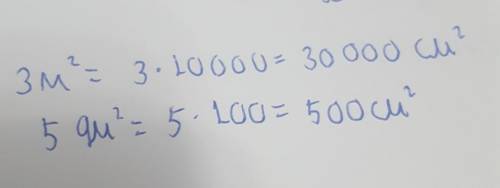 3м² = 3·10000= 30 000 см²
5 дм² = 5·100= 500см²